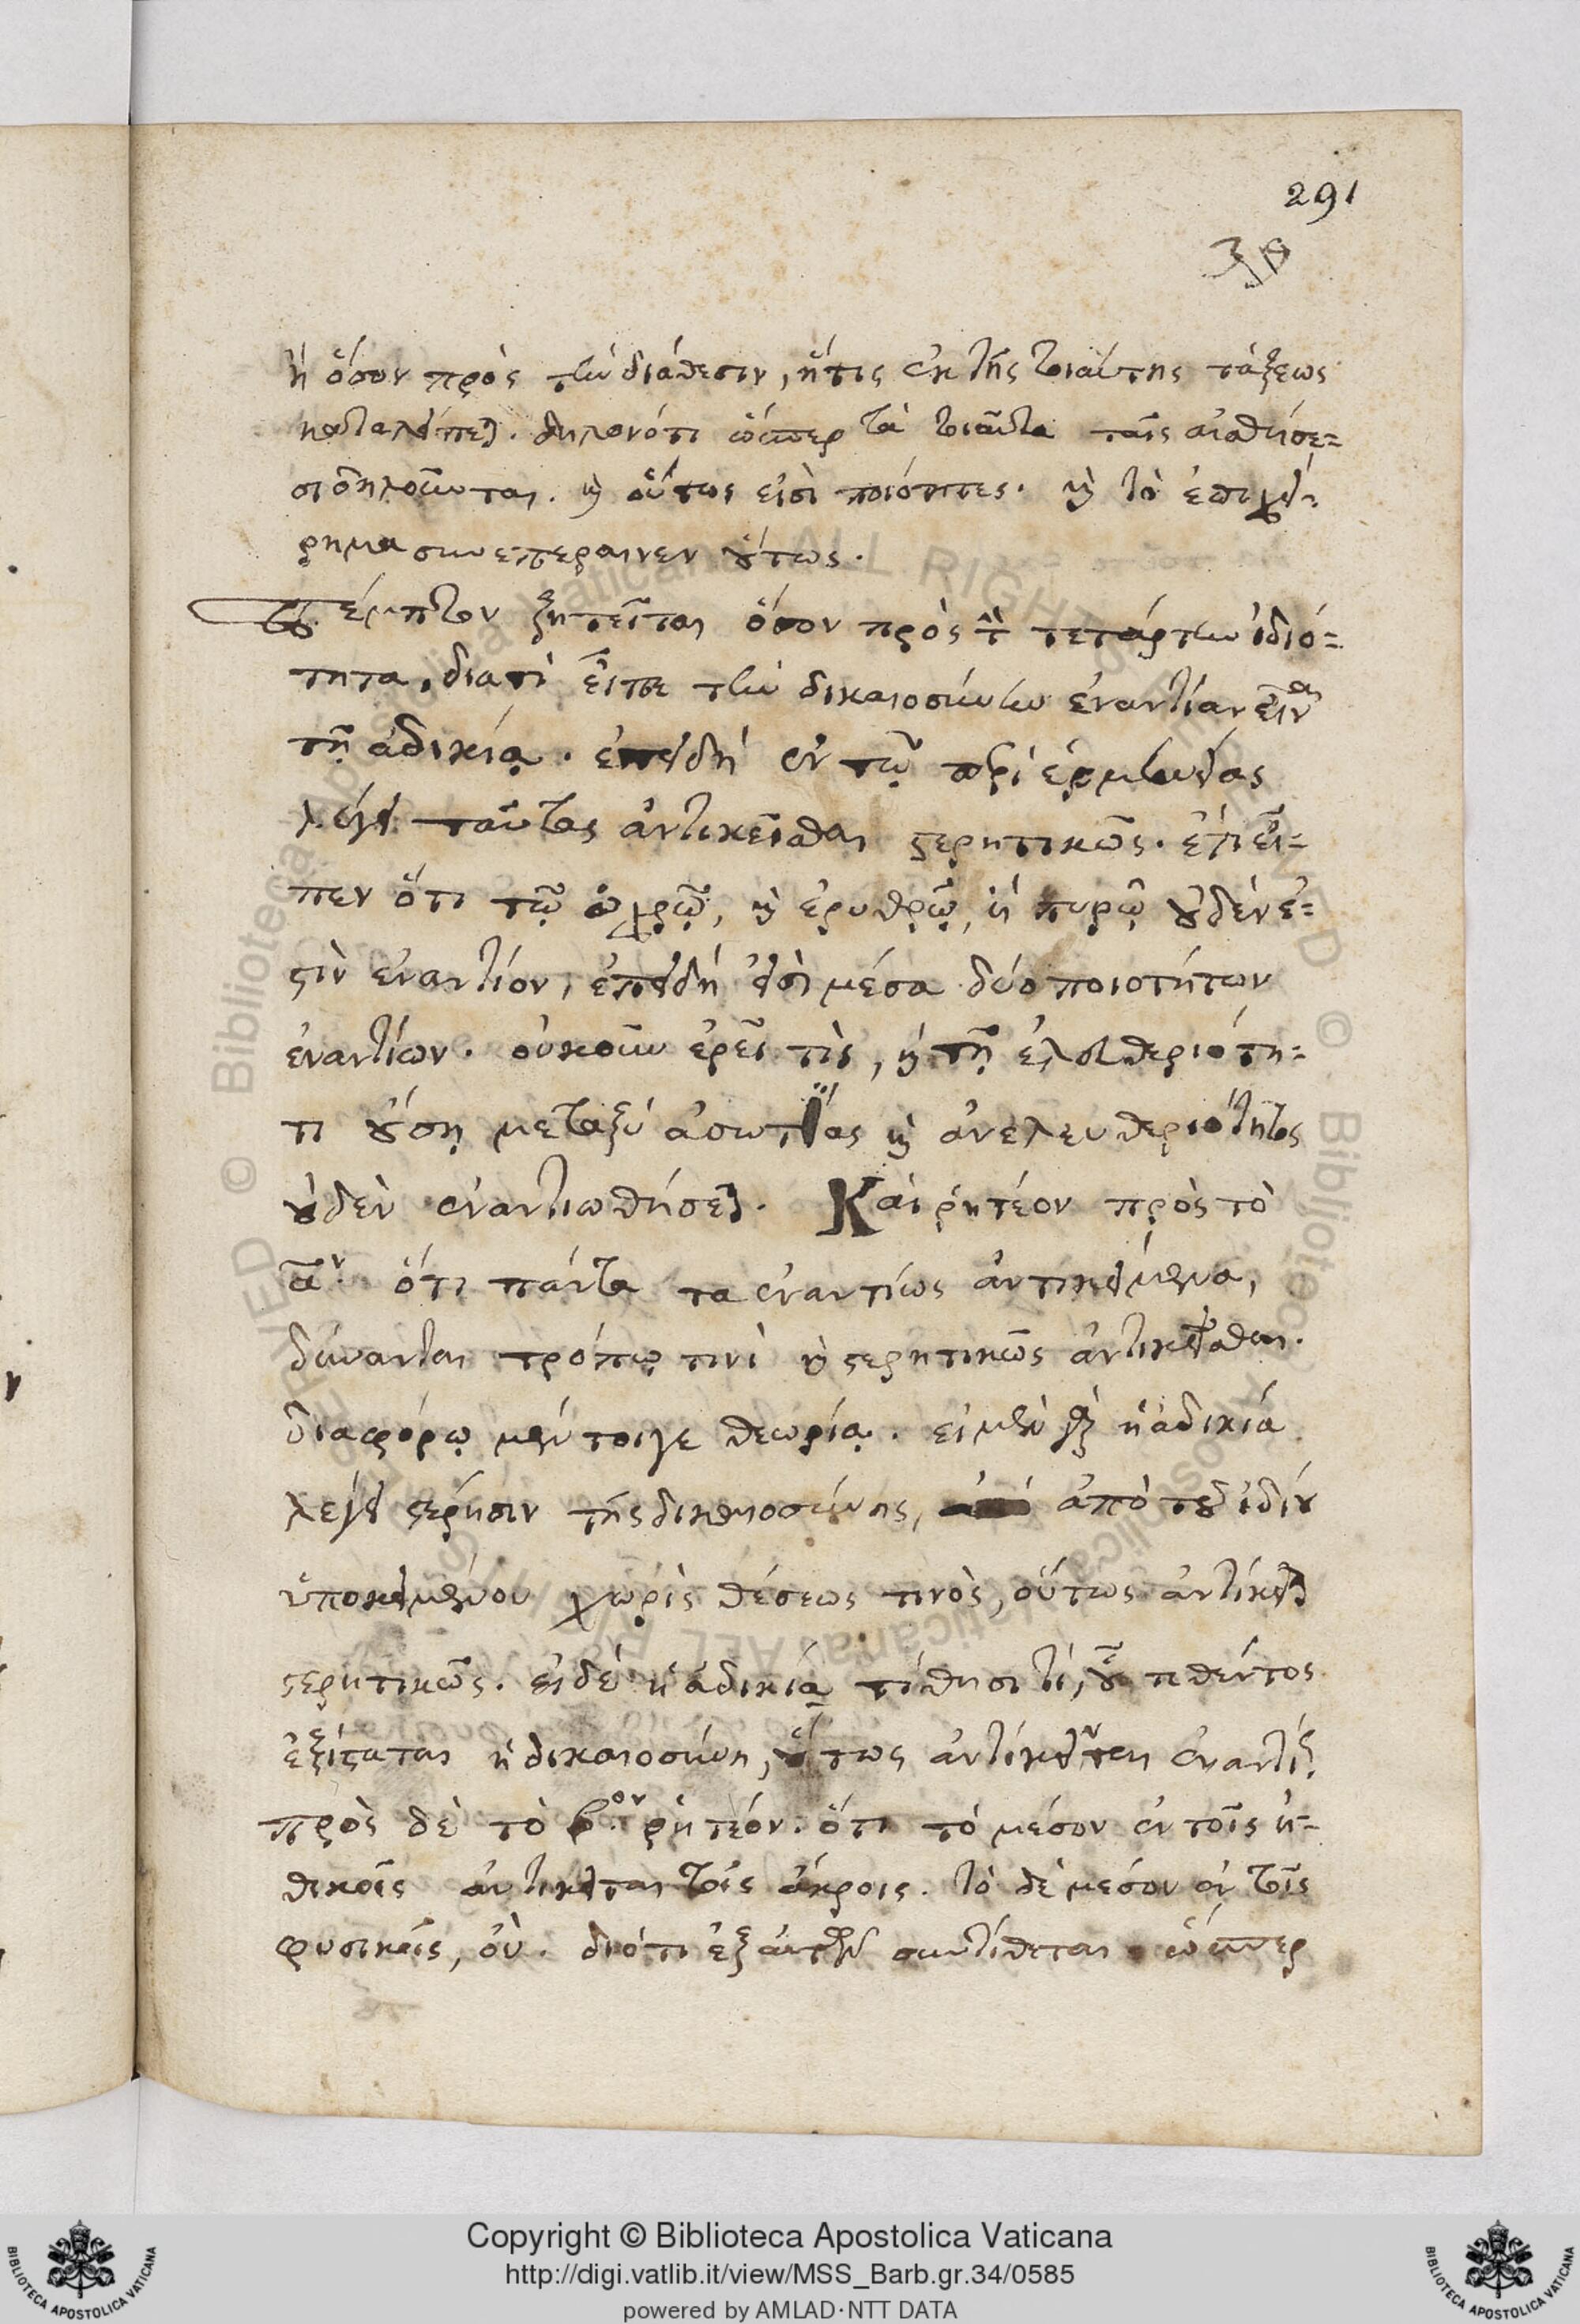 291
ἢ ὅσον πρὸς τὴν διάθεσιν, ἥτις ἐκ τῆς τοιαύτης τάξεως
καταλείπεται. δηλονότι ὥσπερ τὰ τοιαῦτα ταῖς αἰσθήσε=
σι δηλοῦνται. καὶ οὕτως εἰσὶ ποιότητες. καὶ τὸ ἐπιχεί=
ρημα συνεπέραινεν οὕτως.
Πέμπτον ζητεῖται ὅσον πρὸς τὴν τετάρτην ἰδιό=
τητα, διατί εἶπε τὴν δικαιοσύνην ἐναντίαν εἶναι
τῇ ἀδικίᾳ. ἐπειδὴ ἐν τῷ περὶ ἑρμηνείας
λέγει ταύτας ἀντικεῖσθαι στερητικῶς. ἔτι εἶ=
πεν ὅτι τῷ ὠχρῷ, καὶ ἐρυθρῷ, ἢ πυρῷ οὐδέν ἐ=
στιν ἐναντίον, ἐπειδὴ εἰσὶ μέσα δύο ποιοτήτων
ἐναντίων. οὐκοῦν ἐρεῖ τὶς, καὶ τῇ ἐλευθεριότη=
τι οὔσῃ μεταξύ ἀσωτίας καὶ ἀνελευθεριότητος
οὐδὲν ἐναντιωθήσεται. Καὶ ῥητέον πρὸς τὸ
αον. ὅτι πάντα τα ἐναντίως ἀντικείμενα,
δύνανται τρόπῳ τινὶ καὶ στερητικῶς ἀντικεῖσθαι.
διαφόρῳ μέντοιγε θεωρίᾳ. εἰ μὲν γὰρ ἡ ἀδικία
λέγει στέρησιν τῆς δικαιοσύνης, ἀπὸ τοῦ ἰδίου
ὑποκειμένου χωρὶς θέσεως τινὸς, οὕτως ἀντίκειται
στερητικῶς. εἰ δὲ ἡ ἀδικία τίθησι τί, οὗ τιθέντος
ἐξίσταται ἡ δικαιοσύνη, οὕτως ἀντίκειται ἐναντίως.
πρὸς δὲ τὸ βον ῥητέον. ὅτι τὸ μέσον ἐν τοῖς ἠ=
θικοῖς ἀντίκειται τοῖς ἄκροις. τὸ δὲ μέσον ἐν τοῖς
φυσικοῖς, οὐ. διότι ἐξ αὐτῶν συντίθεται. ὥσπερ
Copyright © Biblioteca Apostolica Vaticana
http://digi.vatlib.it/view/MSS_Barb.gr.34/0585
powered by AMLAD·NTT DATA